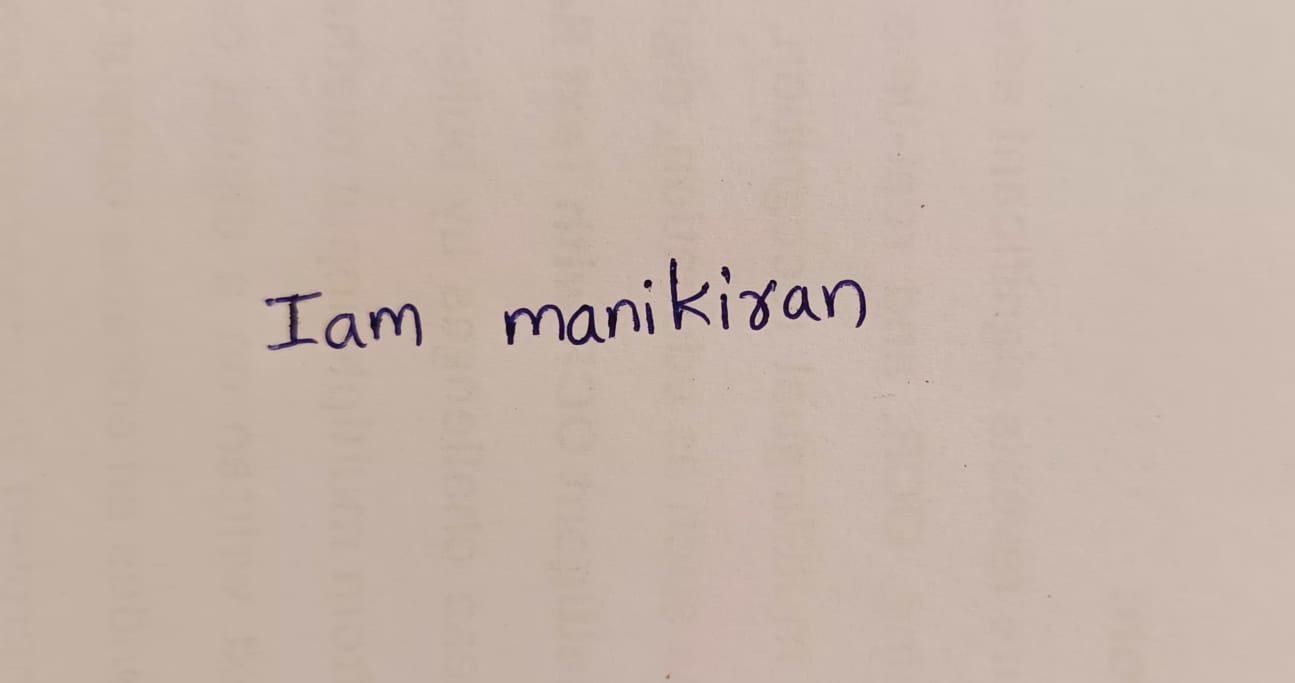 Iam manikiran